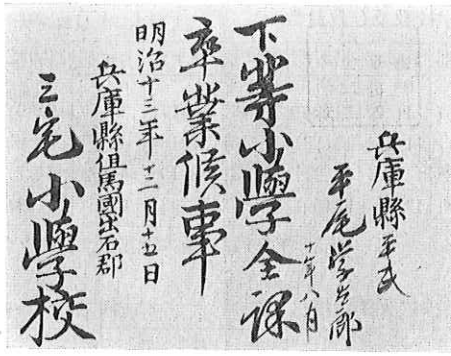 兵庫縣平民
平尾学太郎
十年八月
下等小學全課
卒業候事
明治十三年十二月十五日
兵庫縣但馬國出石郡
三宅小學校